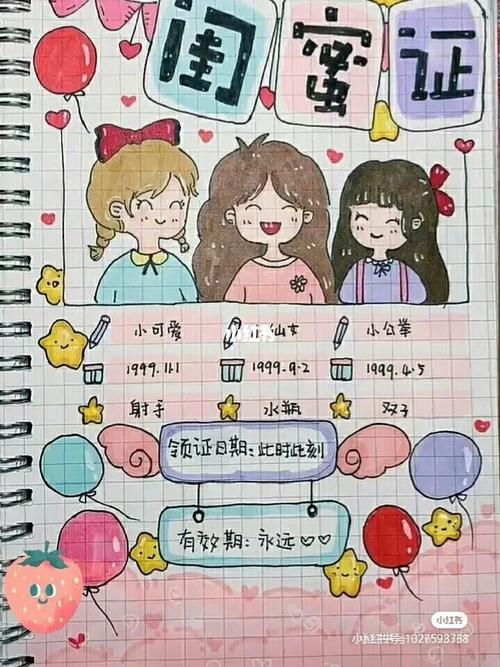 闺蜜证
小可爱 小仙女 小公举
1999.11.1 1999.9.2 1999.4.5
射手 水瓶 双子
领证日期:此时此刻
有效期:永远♡♡
小红书
小红书
小红书号:1027593388